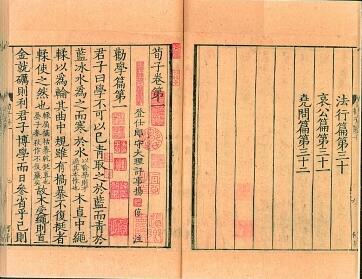 法行篇第三十
哀公篇第三十一
堯問篇第三十二
荀子卷第一
登仕郎守大理評事楊 倞 注
勸學篇第一
君子曰學不可以已青取之於藍而青於
藍冰水為之而寒於水以喻學則才過其本性也木直中繩
輮以為輪其曲中規雖有槁暴不復挺者
輮使之然也輮屈槁枯暴乾挺直也晏子春秋作不復贏矣故木受繩則直
金就礪則利君子博學而日參省乎己則